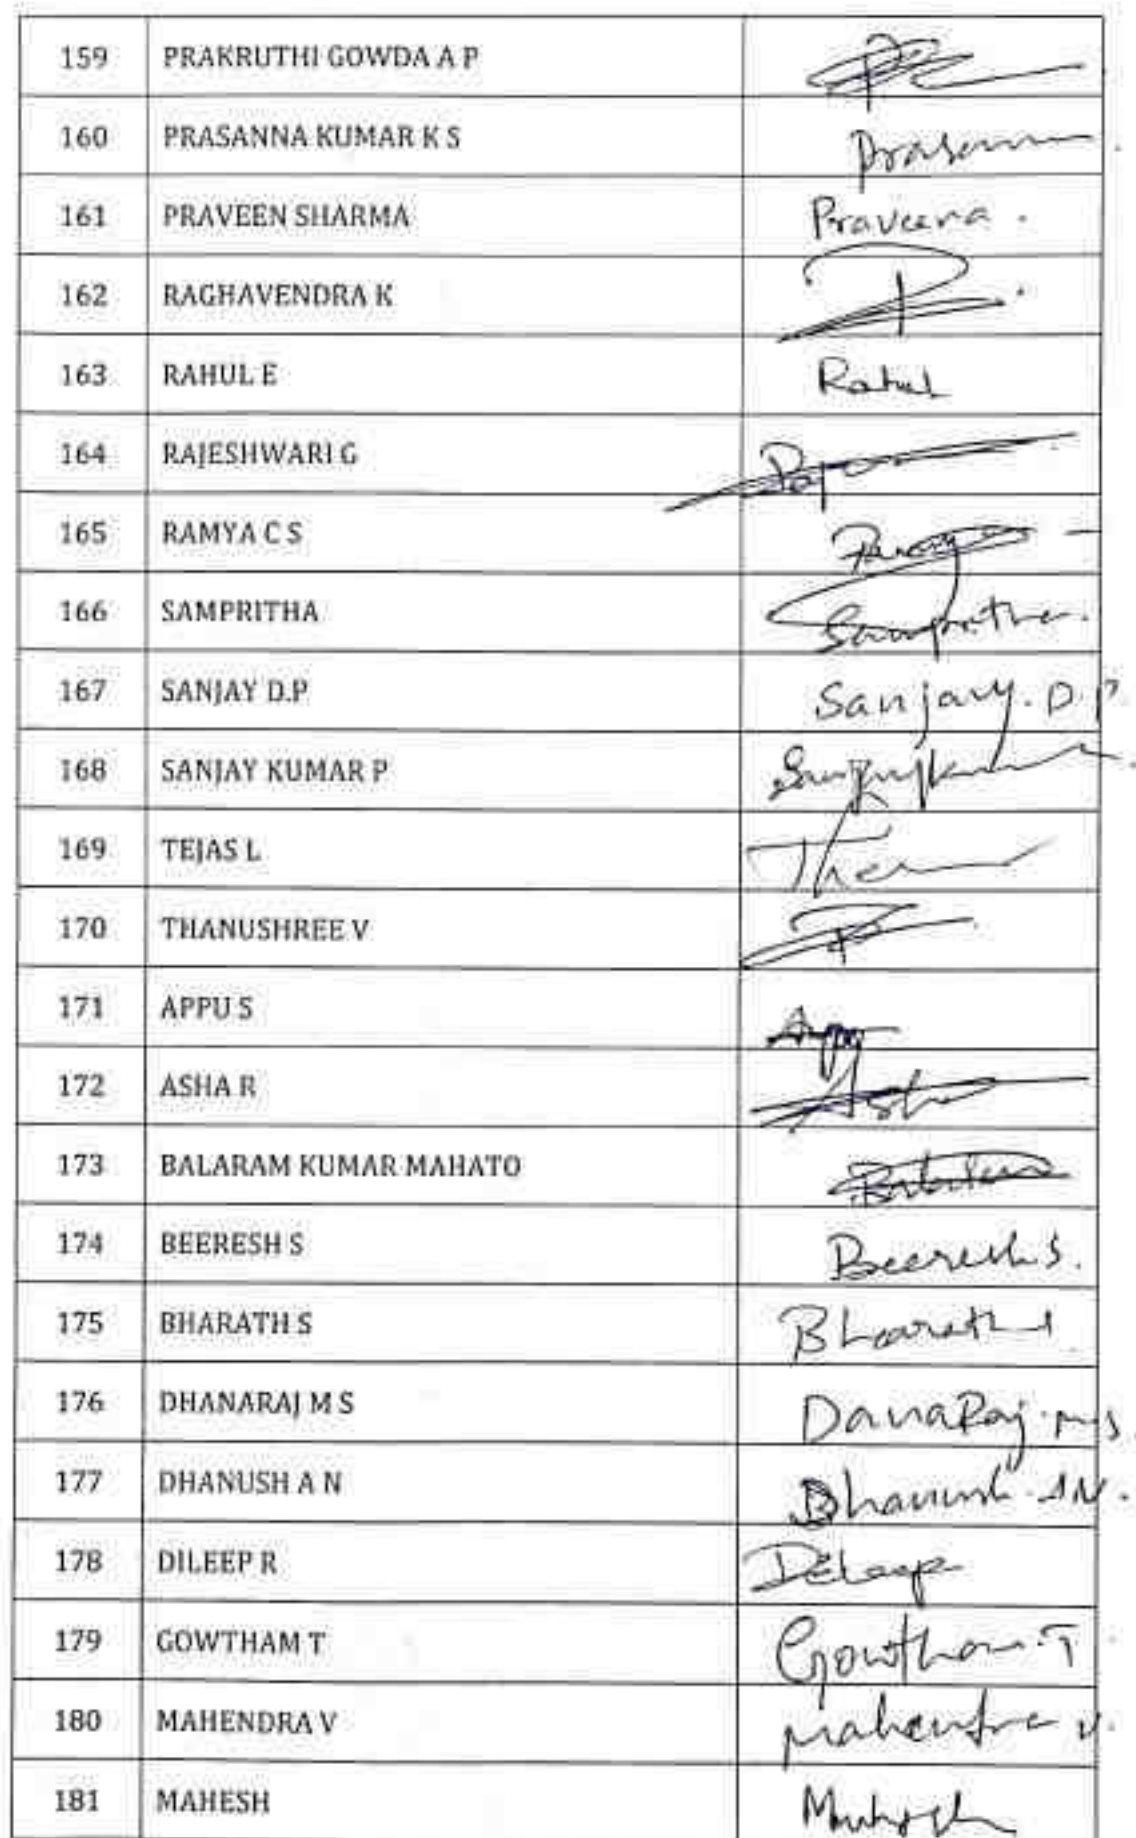 159 PRAKRUTHI GOWDA A P
160 PRASANNA KUMAR K S Prasanna
161 PRAVEEN SHARMA Praveena .
162 RAGHAVENDRA K
163 RAHUL E Rahul
164 RAJESHWARI G
165 RAMYA C S Ramya
166 SAMPRITHA Sampritha.
167 SANJAY D.P Sanjay. D.P
168 SANJAY KUMAR P
169 TEJAS L
170 THANUSHREE V
171 APPU S Appu
172 ASHA R Asha
173 BALARAM KUMAR MAHATO
174 BEERESH S Beeresh S.
175 BHARATH S Bharath S
176 DHANARAJ M S DanaRaj. M S.
177 DHANUSH A N Dhanush. AN.
178 DILEEP R Dileep
179 GOWTHAM T Gowtham. T
180 MAHENDRA V Mahendra V.
181 MAHESH Mahesh